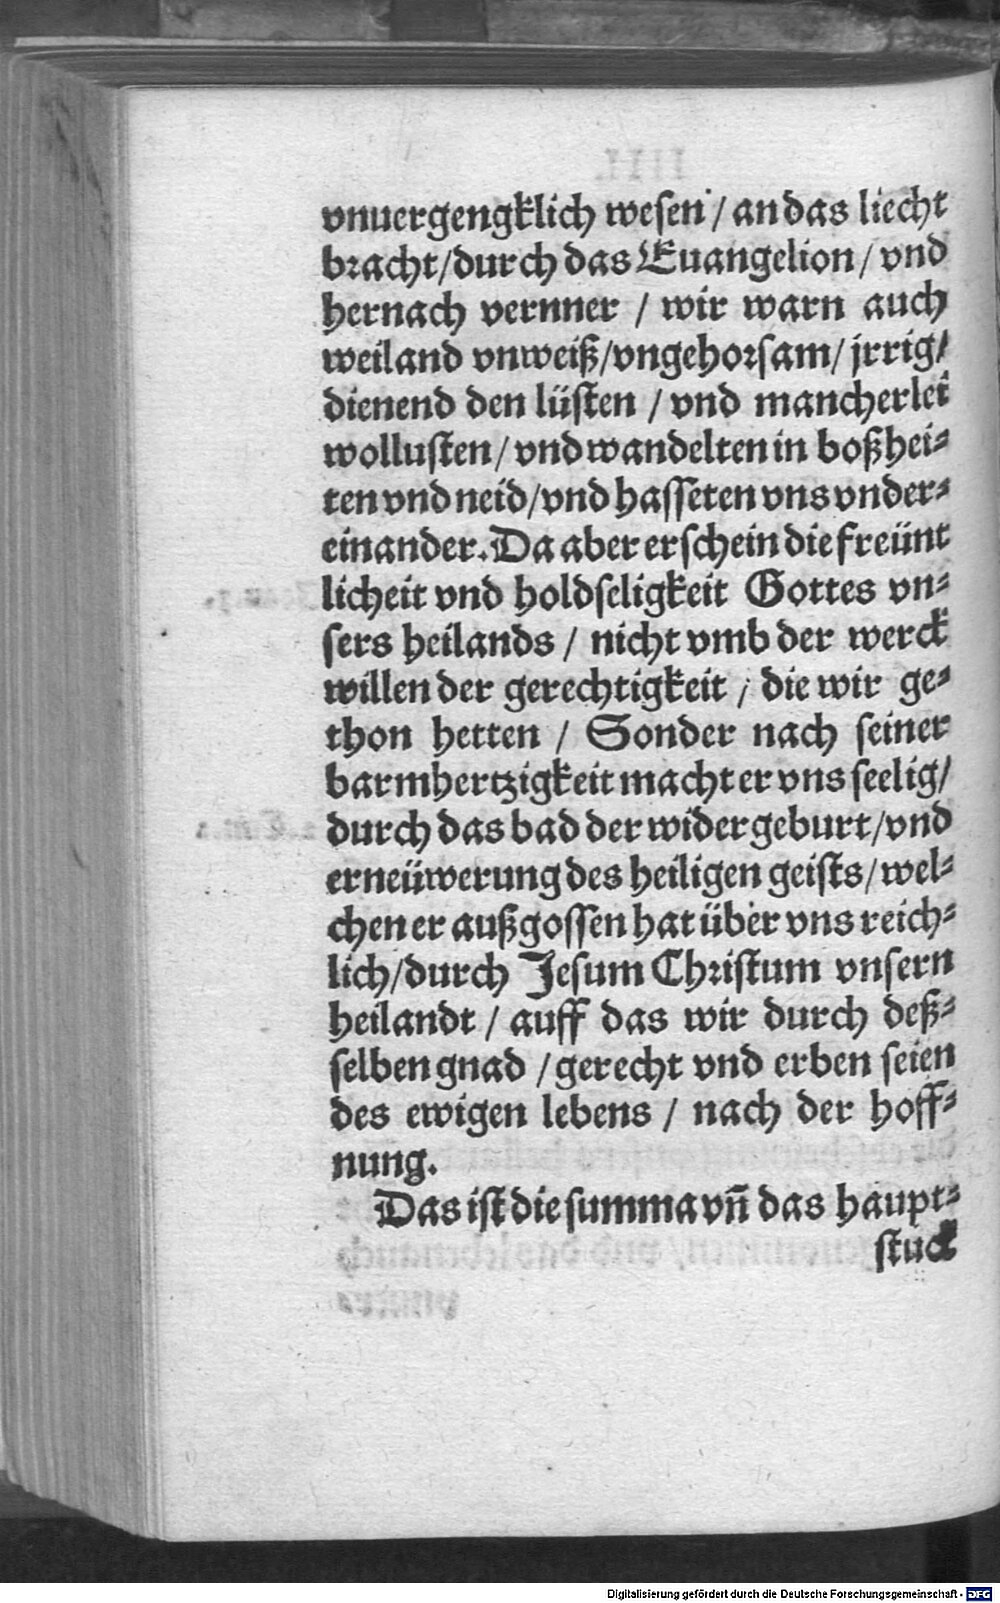 vnuergengklich wesen / an das liecht
bracht/durch das Euangelion/ vnd
hernach vernner / wir warn auch
weiland vnweiß/vngehorsam/ jrrig/
dienend den lüsten / vnd mancherlei
wollusten/ vnd wandelten in boßhei-
ten vnd neid/vnd hasseten vns vnder-
einander. Da aber erschein die freünt
licheit vnd holdseligkeit Gottes vn-
sers heilands / nicht vmb der werck
willen der gerechtigkeit / die wir ge-
thon hetten / Sonder nach seiner
barmhertzigkeit macht er vns seelig/
durch das bad der widergeburt/vnd
erneüwerung des heiligen geists/ wel-
chen er außgossen hat über vns reich-
lich/durch Jesum Christum vnsern
heilandt / auff das wir durch deß-
selben gnad / gerecht vnd erben seien
des ewigen lebens / nach der hoff-
nung.
Das ist die summa vñ das haupt-
stuck
Digitalisierung gefördert durch die Deutsche Forschungsgemeinschaft - DFG